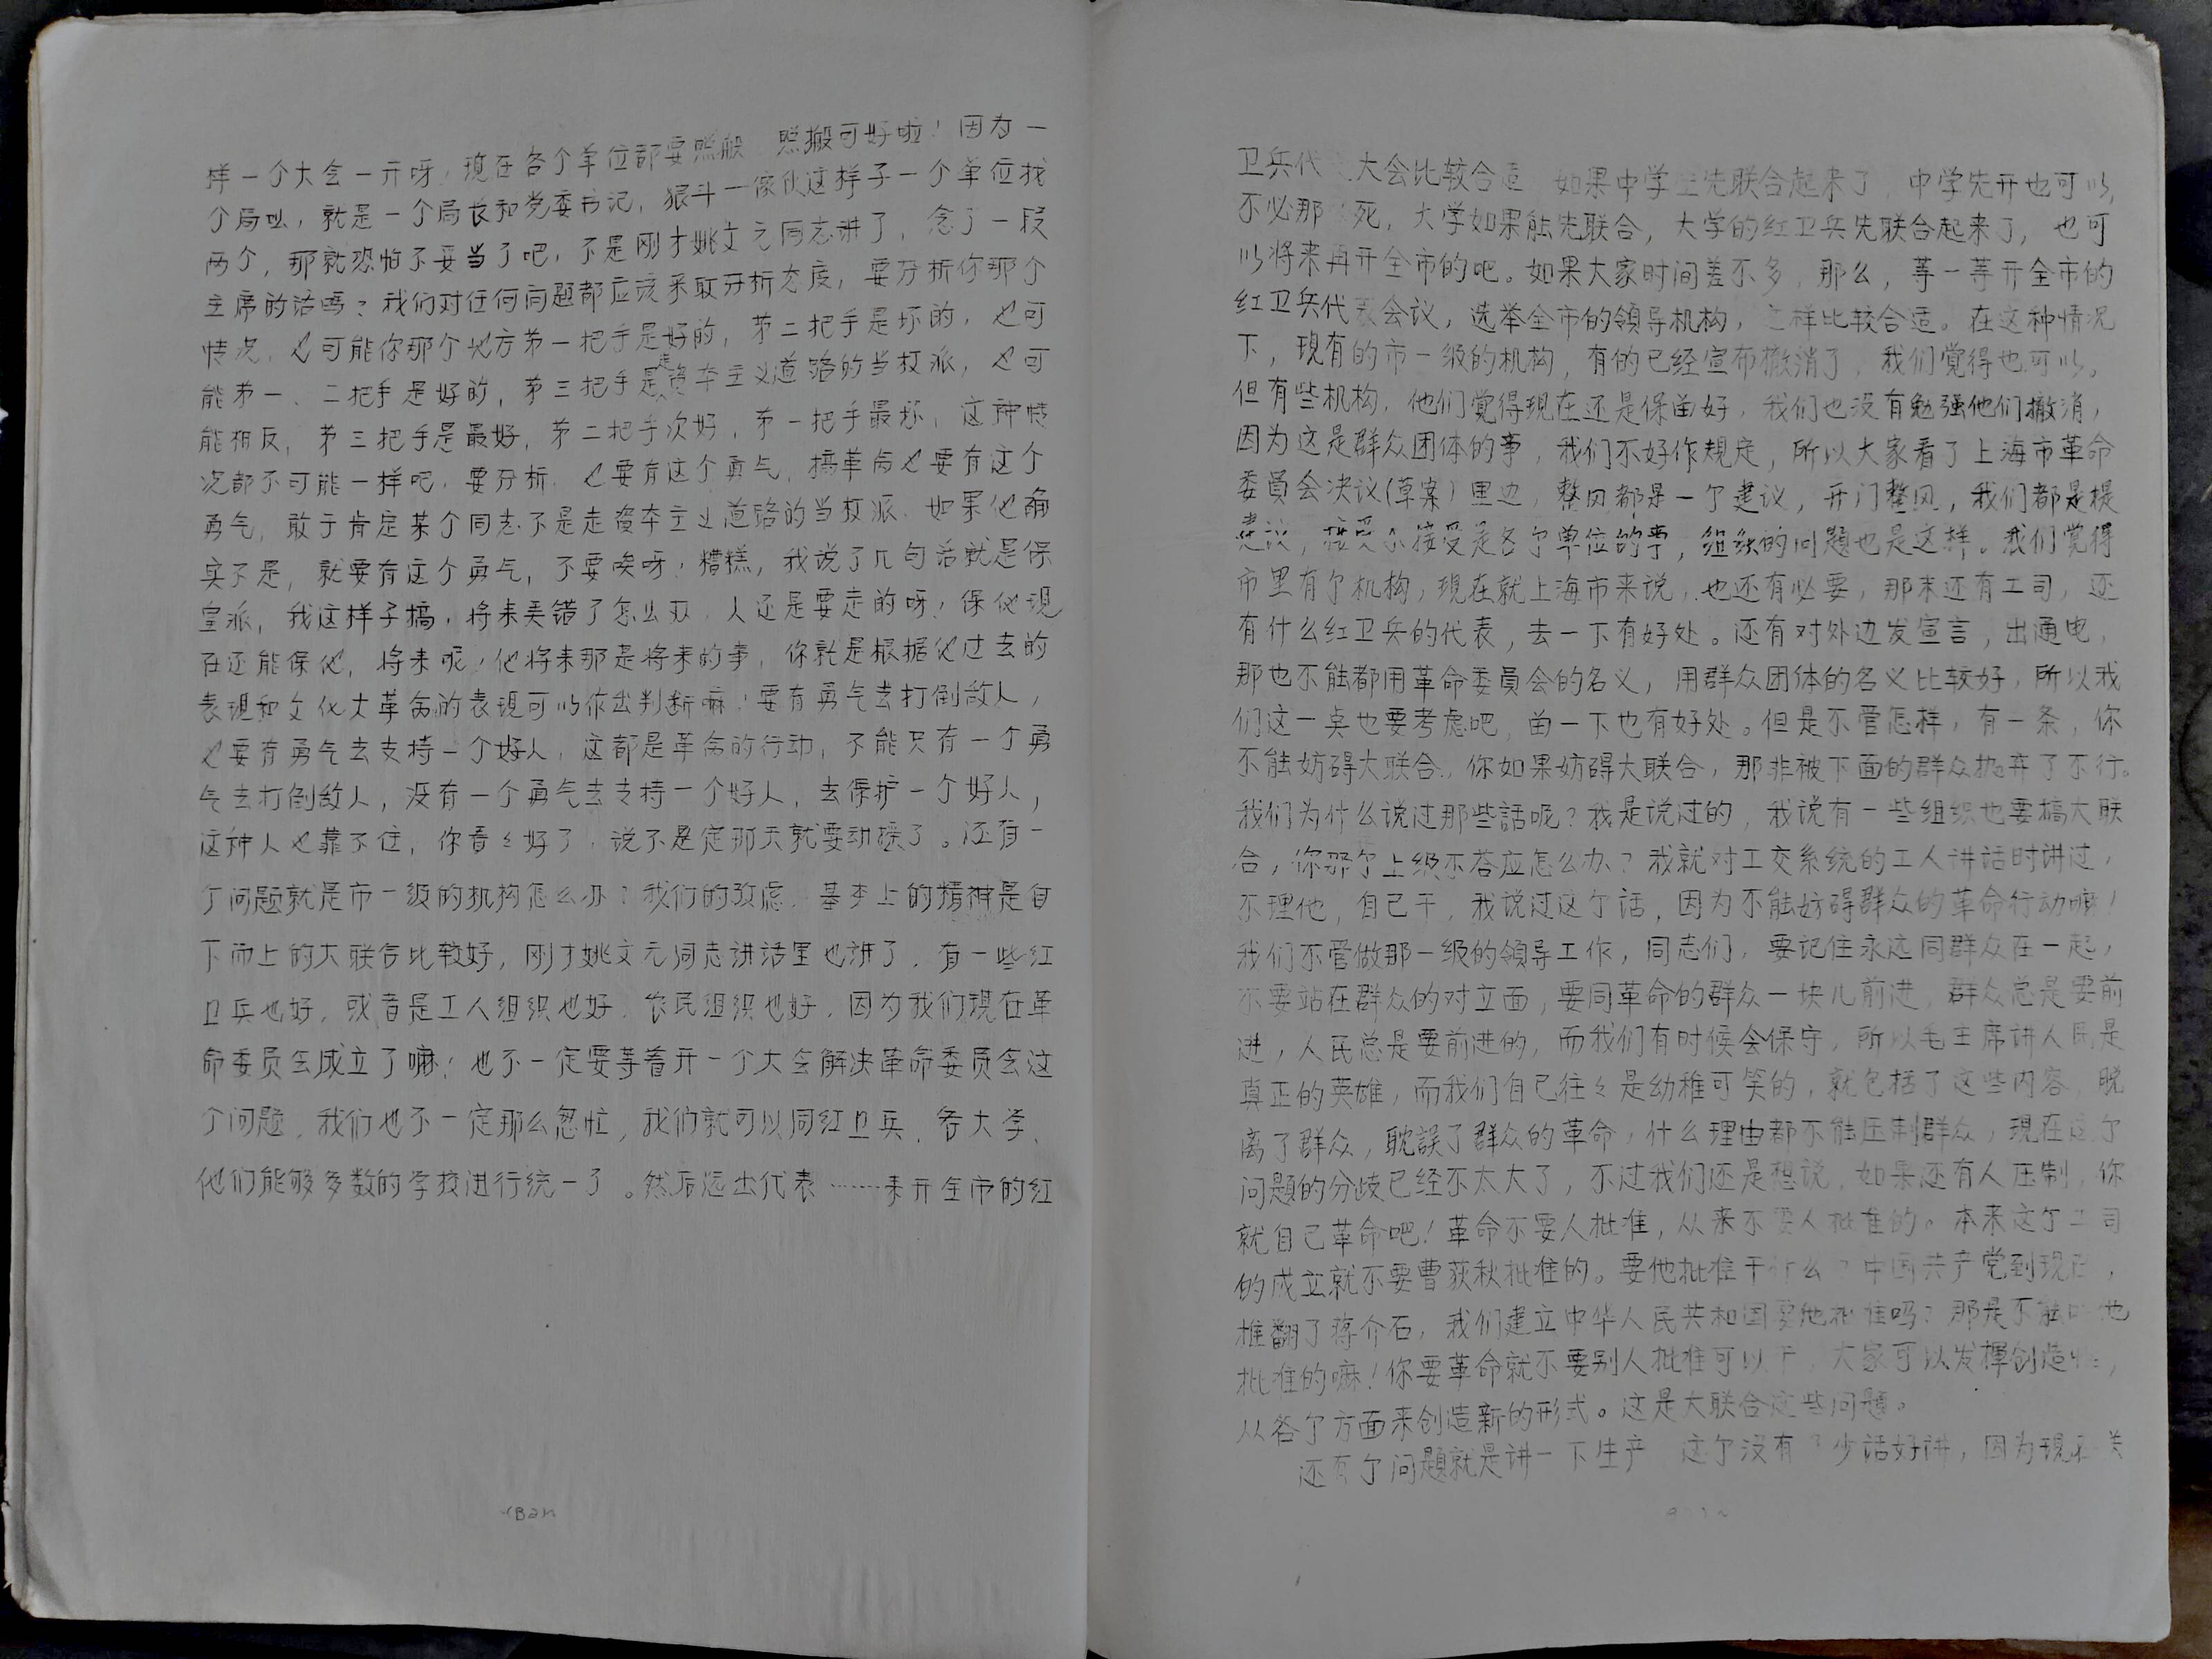 样一个大会一开呀！现在各个单位都要照般 照搬可好啦！因为一
个局吆，就是一个局长和党委书记，狠斗一傢伙这样子一个单位找
两个，那就恐怕不妥当了吧，不是刚才姚文元同志讲了，念了一段
主席的话吗？我们对任何问题都应该采取分析态度，要分析你那个
情况，也可能你那个地方第一把手是好的，第二把手是坏的，也可
能第一、二把手是好的，第三把手是走资本主义道路的当权派，也可
能相反，第三把手是最好，第二把手次好，第一把手最坏，这种情
况都不可能一样吧，要分析，也要有这个勇气，搞革命也要有这个
勇气，敢于肯定某个同志不是走资本主义道路的当权派，如果他确
实不是，就要有这个勇气，不要唉呀！糟糕，我说了几句话就是保
皇派，我这样子搞，将来弄错了怎么双，人还是要走的呀！保他现
在还能保他，将来呢！他将来那是将来的事，你就是根据他过去的
表现和文化大革命的表现可以作出判断嘛！要有勇气去打倒敌人，
也要有勇气去支持一个好人，这都是革命的行动，不能只有一个勇
气去打倒敌人，没有一个勇气去支持一个好人，去保护一个好人，
这种人也靠不住，你看々好了，说不是定那天就要动摇了。还有一
个问题就是市一级的机构怎么办？我们的攷虑，基本上的精神是自
下而上的大联合比较好，刚才姚文元同志讲话里也讲了，有一些红
卫兵也好，或者是工人组织也好，农民组织也好，因为我们现在革
命委员会成立了嘛！也不一定要等着开一个大会解决革命委员会这
个问题，我们也不一定那么忽忙，我们就可以同红卫兵，各大学、
他们能够多数的学校进行统一了。然后选出代表……来开全市的红
卫兵代 大会比较合适 如果中学生先联合起来了，中学先开也可以，
不必那 死，大学如果能先联合，大学的红卫兵先联合起来了，也可
以将来再开全市的吧。如果大家时间差不多，那么，等一等开全市的
红卫兵代表会议，选举全市的领导机构，这样比较合适。在这种情况
下，现有的市一级的机构，有的已经宣布撤消了，我们觉得也可以。
但有些机构，他们觉得现在还是保留好，我们也没有勉强他们撤消，
因为这是群众团体的事，我们不好作规定，所以大家看了上海市革命
委員会决议(草案)里边，整风都是一个建议，开门整风，我们都是提
建议，接受不接受是各个单位的事，组织的问題也是这样。我们覚得
市里有个机构，现在就上海市来说，也还有必要，那末还有工司，还
有什么红卫兵的代表，去一下有好处。还有对外边发宣言，出通电，
那也不能都用革命委員会的名义，用群众团体的名义比较好，所以我
们这一桌也要考虑吧，留一下也有好处。但是不管怎样，有一条，你
不能妨碍大联合，你如果妨碍大联合，那非被下面的群众抛弃了不行。
我们为什么说过那些話呢？我是说过的，我说有一些组织也要搞大联
合，你那个上级不答应怎么办？我就对工交系统的工人讲话时讲过，
不理他，自已干，我说过这个话，因为不能妨碍群众的革命行动嘛！
我们不管做那一级的领导工作，同志们，要记住永远同群众在一起，
不要站在群众的对立面，要同革命的群众一块儿前进，群众总是要前
进，人民总是要前进的，而我们有时候会保守，所以毛主席讲人民是
真正的英雄，而我们自已往々是幼稚可笑的，就包括了这些内容，脱
离了群众，耽誤了群众的革命，什么理由都不能压制群众，现在这个
问题的分歧已经不太大了，不过我们还是想说，如果还有人压制，你
就自己革命吧！革命不要人批准，从来不要人批准的。本来这个工司
的成立就不要曹荻秋批准的。要他批准干什么？中国共产党到现在，
推翻了蒋介石，我们建立中华人民共和国要他批准吗？那是不能 他
批准的嘛！你要革命就不要别人批准可以干，大家可以发挥创造性，
从各个方面来创造新的形式。这是大联合这些问题。
还有个问題就是讲一下生产 这个没有 少话好讲，因为现在